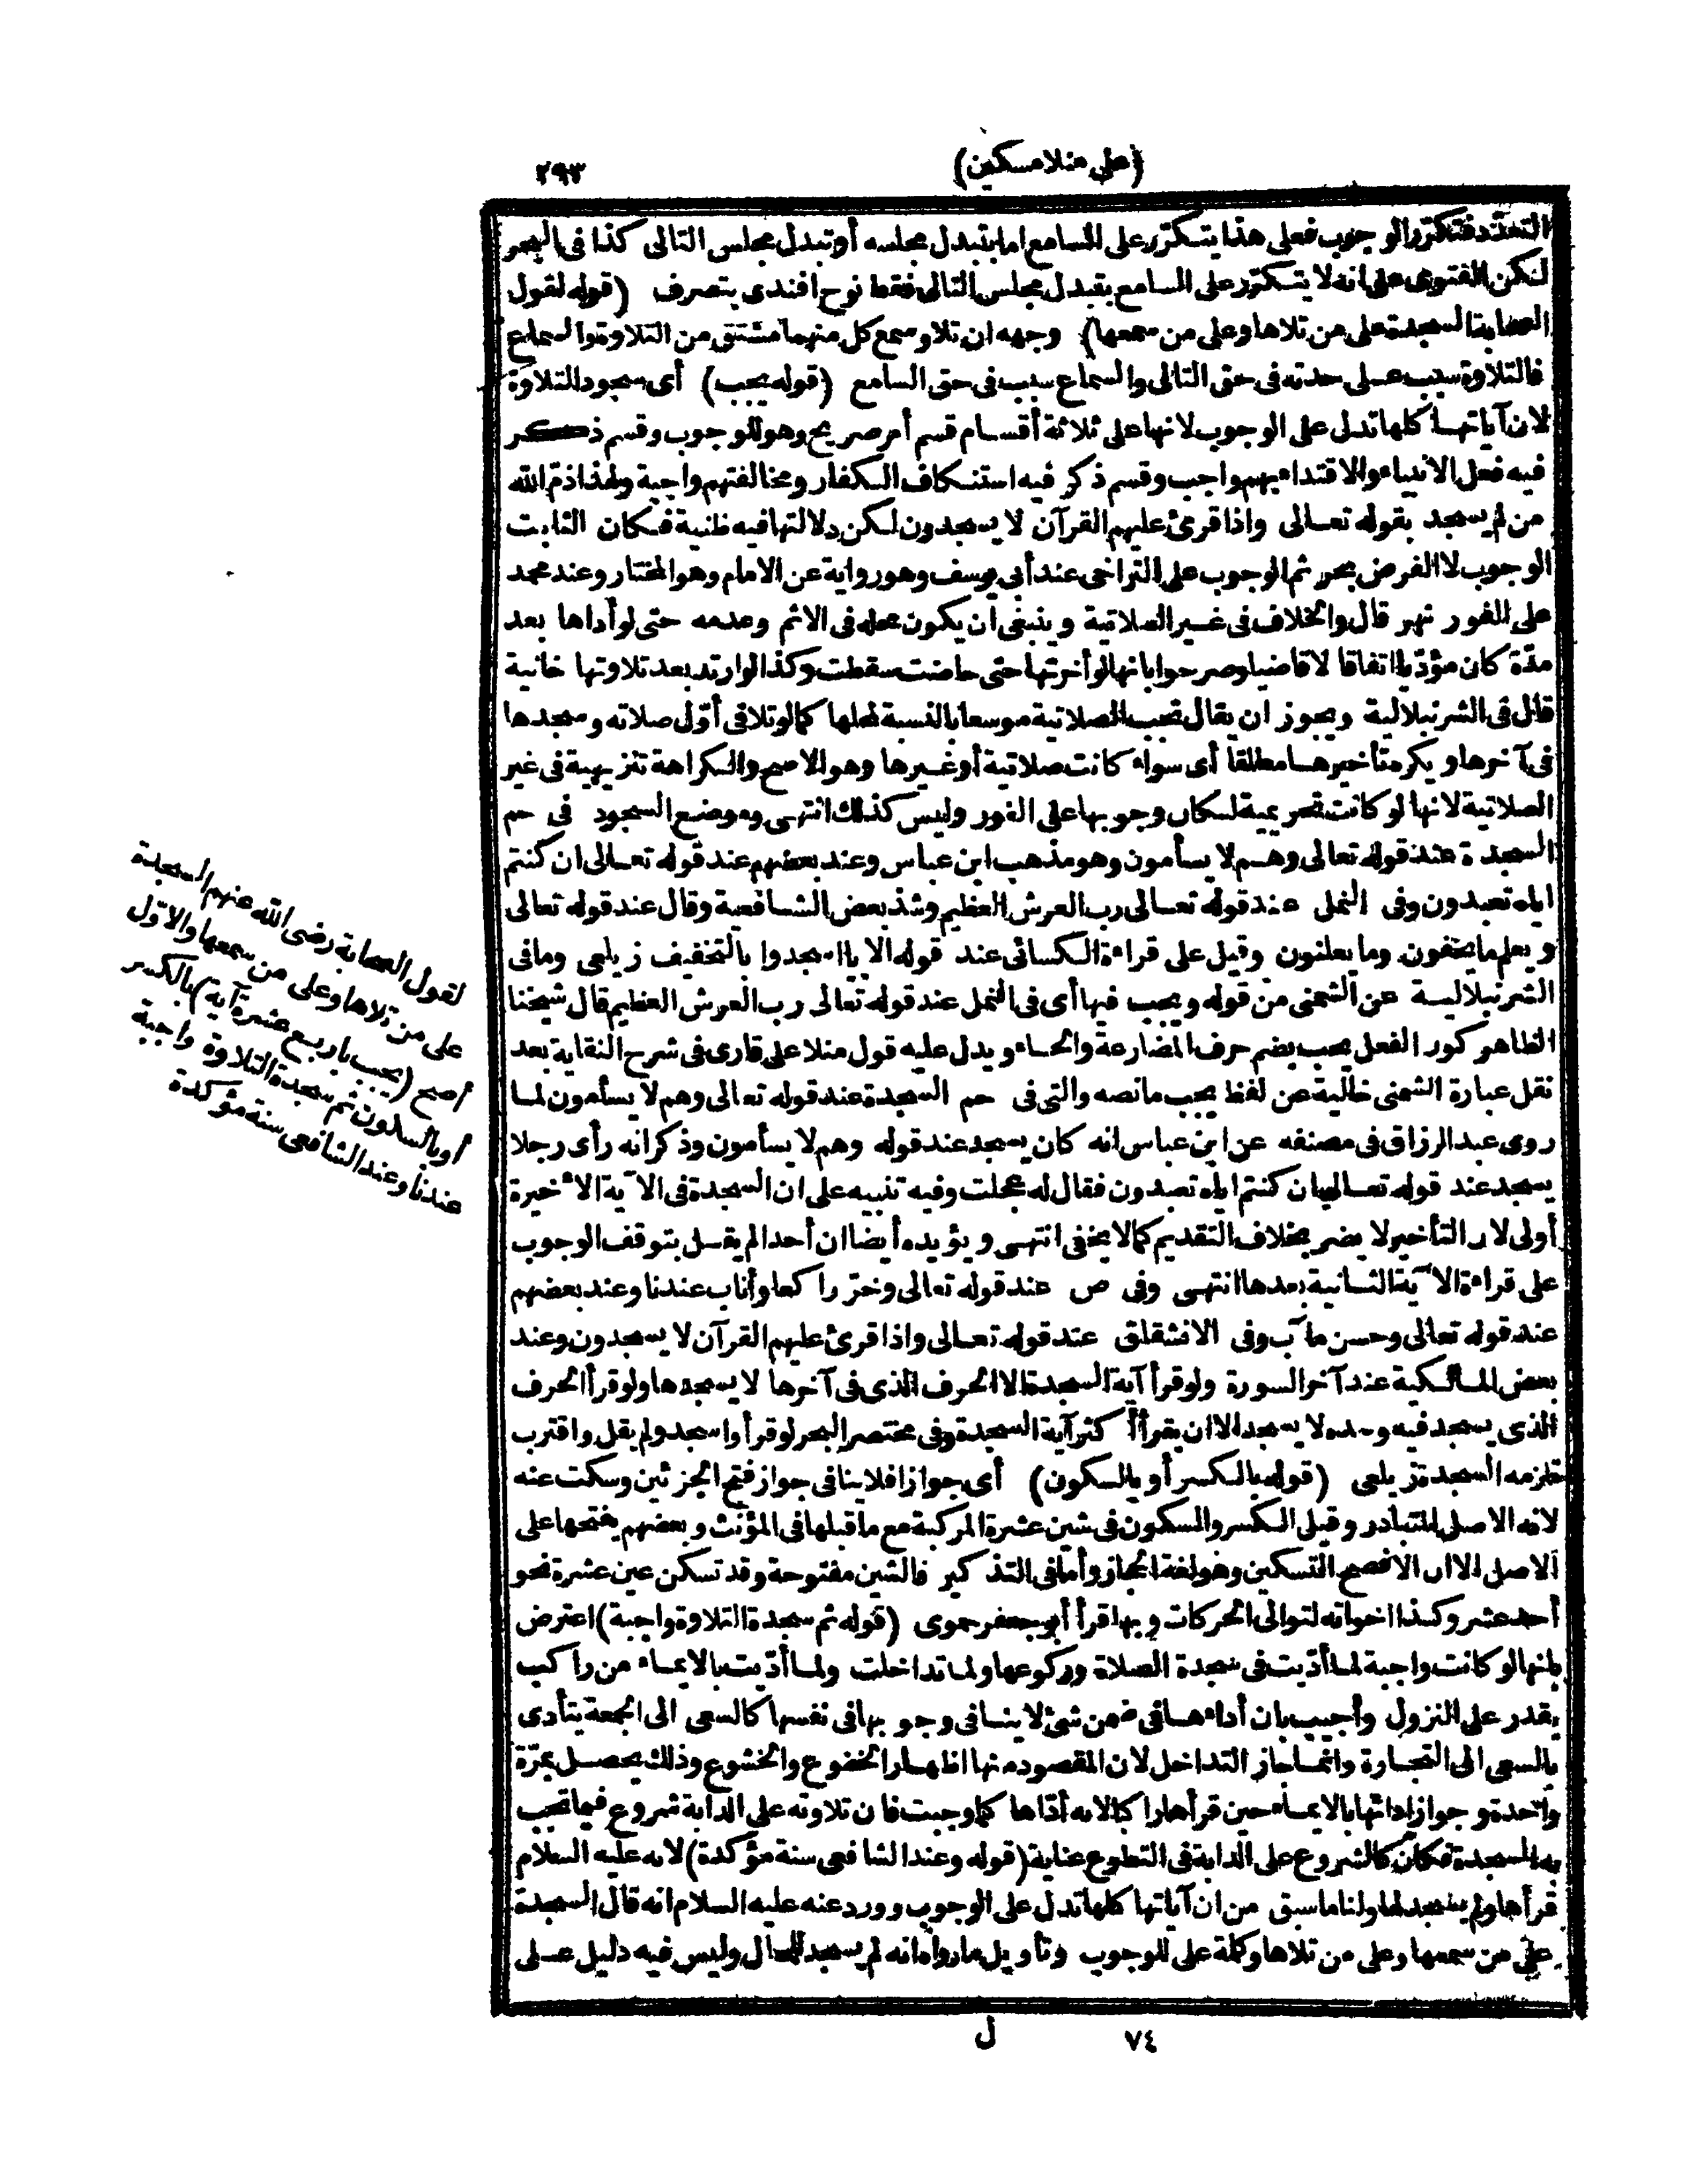 (على منلا مسكين)
٢٩٣
التعدد فتكرر الوجوب فعلى هذا يتكرر على السامع اما بتبدل مجلسه أو تبدل مجلس التالى كذا فى البحر
لكن الفتوى على انه لا يتكرر على السامع بتبدل مجلس التالى فقط نوح افندى بتصرف (قوله لقول
الصحابة السجدة على من تلاها وعلى من سمعها) وجهه ان تلا وسمع كل منهما مشتق من التلاوة والسماع
فالتلاوة سبب على حدته فى حق التالى والسماع سبب فى حق السامع (قوله يجب) أى سجود التلاوة
لان آياتها كلها تدل على الوجوب لانها على ثلاثة أقسام قسم أمر صريح وهو للوجوب وقسم ذكر
فيه فعل الانبياء والاقتداء بهم واجب وقسم ذكر فيه استنكاف الكفار ومخالفتهم واجبة ولهذا ذم الله
من لم يسجد بقوله تعالى واذا قرئ عليهم القرآن لا يسجدون لكن دلالتها فيه ظنية فكان الثابت
الوجوب لا الفرض بحر ثم الوجوب على التراخى عند أبى يوسف وهو رواية عن الامام وهو المختار وعند محمد
على الفور نهر قال والخلاف فى غير الصلاتية وينبغى ان يكون محله فى الاثم وعدمه حتى لو أداها بعد
مدّة كان مؤدّيا اتفاقا لا قاضيا وصرحوا بانها لو أخرتها حتى حاضت سقطت وكذا لو ارتد بعد تلاوتها خانية
قال فى الشرنبلالية ويجوز ان يقال تجب الصلاتية موسعا بالنسبة لمحلها كما لو تلا فى أوّل صلاته وسجدها
فى آخرها ويكره تأخيرها مطلقا أى سواء كانت صلاتية أو غيرها وهو الاصح والكراهة تنزيهية فى غير
الصلاتية لانها لو كانت تحريمية لكان وجوبها على الفور وليس كذلك انتهى وموضع السجود فى حم
السجدة عند قوله تعالى وهم لا يسأمون وهو مذهب ابن عباس وعند بعضهم عند قوله تعالى ان كنتم
اياه تعبدون وفى النمل عند قوله تعالى رب العرش العظيم وشذ بعض الشافعية وقال عند قوله تعالى
ويعلم ما تخفون وما يعلنون وقيل على قراءة الكسائى عند قوله الا يا اسجدوا بالتخفيف زيلعى وما فى
الشرنبلالية عن الشمنى من قوله ويجب فيها أى فى النمل عند قوله تعالى رب العرش العظيم قال شيخنا
الظاهر كون الفعل يحب بضم حرف المضارعة والحاء ويدل عليه قول منلا على قارى فى شرح النقاية بعد
نقل عبارة الشمنى خالية عن لفظ يجب ما نصه والتى فى حم السجدة عند قوله تعالى وهم لا يسأمون لما
روى عبد الرزاق فى مصنفه عن ابن عباس انه كان يسجد عند قوله وهم لا يسأمون وذكر انه رأى رجلا
يسجد عند قوله تعالى ان كنتم اياه تعبدون فقال له عجلت وفيه تنبيه على ان السجدة فى الآية الاخيرة
أولى لان التأخير لا يضر بخلاف التقديم كما لا يخفى انتهى ويؤيده أيضا ان أحدا لم يقل بتوقف الوجوب
على قراءة الآية الثانية بعدها انتهى وفى ص عند قوله تعالى وخرّ راكعا وأناب عندنا وعند بعضهم
عند قوله تعالى وحسن مآب وفى الانشقاق عند قوله تعالى واذا قرئ عليهم القرآن لا يسجدون وعند
بعض المالكية عند آخر السورة ولو قرأ آية السجدة الا الحرف الذى فى آخرها لا يسجدها ولو قرأ الحرف
الذى يسجد فيه وحده لا يسجد الا ان يقرأ أكثر آية السجدة وفى مختصر البحر لو قرأ واسجد ولم يقل واقترب
تلزمه السجدة زيلعى (قوله بالكسر أو بالسكون) أى جوازا فلا ينافى جواز فتح الجزئين وسكت عنه
لانه الاصل المتبادر وقيل الكسر والسكون فى شين عشرة المركبة مع ما قبلها فى المؤنث وبعضهم يفتحها على
الاصل الا ان الافصح التسكين وهو لغة الحجاز وأما فى التذكير فالشين مفتوحة وقد تسكن عين عشرة نحو
أحد عشر وكذا اخواته لتوالى الحركات وبها قرأ أبو جعفر حموى (قوله ثم سجدة التلاوة واجبة) اعترض
بانها لو كانت واجبة لما أدّيت فى سجدة الصلاة وركوعها ولما تداخلت ولما أدّيت بالايماء من راكب
يقدر على النزول وأجيب بان أداءها فى ضمن شئ لا ينافى وجوبها فى نفسها كالسعى الى الجمعة يتأدى
بالسعى الى التجارة وانما جاز التداخل لان المقصود منها اظهار الخضوع والخشوع وذلك يحصل بمرّة
واحدة وجواز ادائها بالايماء حين قرأها راكبا لانه أدّاها كما وجبت فان تلاوته على الدابة شروع فيما تجب
به السجدة فكان كالشروع على الدابة فى التطوع عناية (قوله وعند الشافعى سنة مؤكدة) لانه عليه السلام
قرأها ولم يسجد لها ولنا ما سبق من ان آياتها كلها تدل على الوجوب وورد عنه عليه السلام انه قال السجدة
على من سمعها وعلى من تلاها وكلمة على للوجوب وتأويل ما رواه انه لم يسجد للحال وليس فيه دليل على
لقول الصحابة رضى الله عنهم السجدة
على من تلاها وعلى من سمعها والاوّل
أصح (يجب باربع عشرة آية) بالكسر
أو بالسكون ثم سجدة التلاوة واجبة
عندنا وعند الشافعى سنة مؤكدة
٧٤
ل